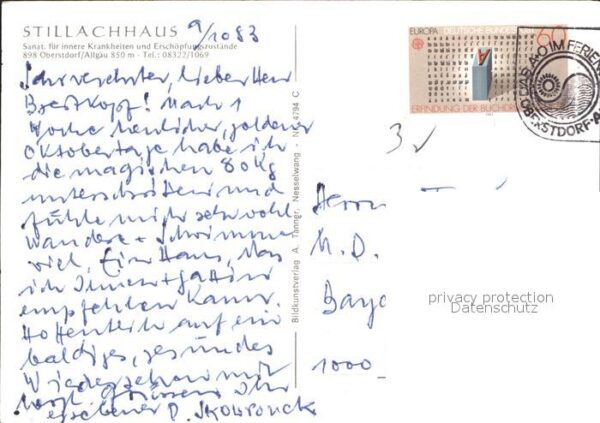 STILLACHHAUS
9/10 83
Sanat. für innere Krankheiten und Erschöpfungszustände
898 Oberstdorf/Allgäu 850 m - Tel.: 08322/1069
Sehr verehrter, lieber Herr
Brestkopf! Nach 1
Woche herrlicher, goldener
Oktobertage habe ich
die magischen 80 Kg
unterschritten und
fühle mich sehr wohl.
Wandere + Schwimme
viel. Ein Haus, das
ich Ihnen + Gattin
empfehlen kann.
Hoffentlich auf ein
baldiges, gesundes
Wiedersehen mit
herzl. Grüssen Ihr
ergebener P. Skowronek
Bildkunstverlag A. Tanner, Nesselwang - Nr. 4794 C
EUROPA DEUTSCHE BUNDES
60
ERFINDUNG DER BUCHDRU
DAS A-O IM FERIEN
OBERSTDORF-A
3
Herrn
M. D.
Baye
1000
privacy protection
Datenschutz